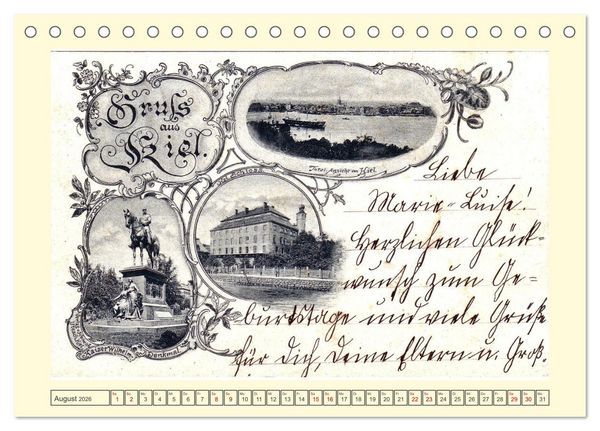 Gruss
aus
Kiel.
Total-Ansicht von Kiel.
Kgl. Schloss.
Kaiser Wilhelm
Denkmal
Liebe
Marie-Luise!
Herzlichen Glück-
wunsch zum Ge-
burtstage und viele Grüße
für Dich, Deine Eltern u. Groß.
August 2026
Sa So Mo Di Mi Do Fr Sa So Mo Di Mi Do Fr Sa So Mo Di Mi Do Fr Sa So Mo Di Mi Do Fr Sa So Mo
1 2 3 4 5 6 7 8 9 10 11 12 13 14 15 16 17 18 19 20 21 22 23 24 25 26 27 28 29 30 31